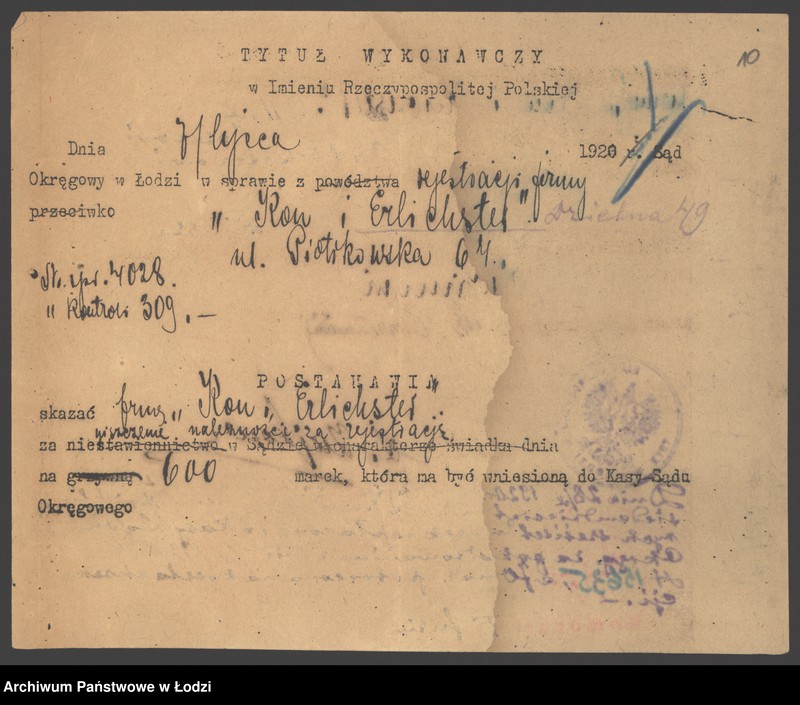 10
TYTUŁ WYKONAWCZY
w Imieniu Rzeczypospolitej Polskiej
Dnia 7/lipca 1920 r. Sąd
Okręgowy w Łodzi w sprawie z powództwa rejestracji firmy
przeciwko „Kon i Erlichster" Dzielna 49
ul. Piotrkowska 67.
Nr. spr. 4028.
" Kontroli 309.—
POSTANAWIA
skazać firmę „Kon i Erlichster"
niszczenie należności za rejestrację
za niestawiennictwo w Sądzie w charakterze świadka dnia
na grzywnę 600 marek, która ma być wniesioną do Kasy Sądu
Okręgowego
15635
Archiwum Państwowe w Łodzi